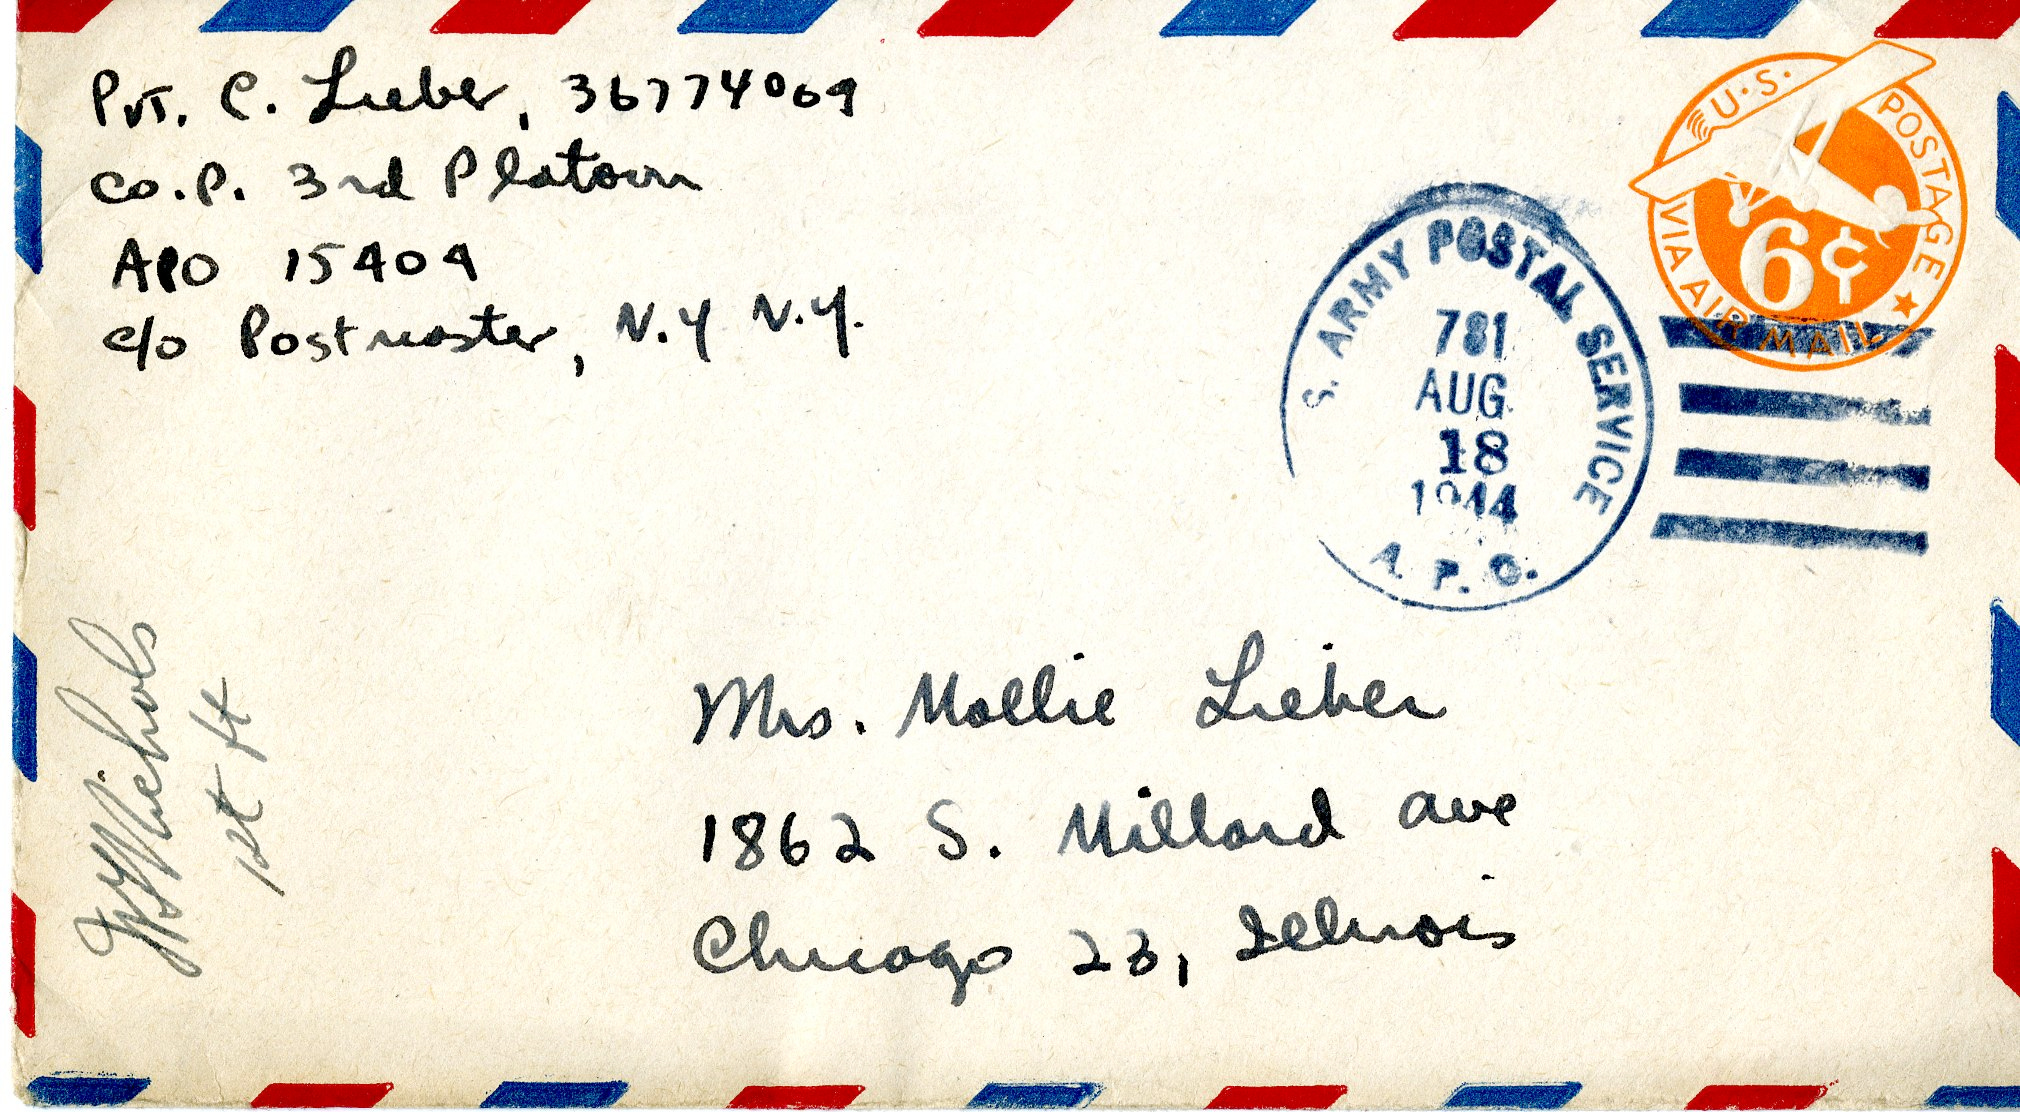 Pvt. C. Lieber, 36774069
Co. P. 3rd Platoon
APO 15404
c/o Postmaster, N.Y N.Y.
U.S. POSTAGE
VIA AIR MAIL
6¢
S. ARMY POSTAL SERVICE
781
AUG
18
1944
A. P. O.
Mrs. Mollie Lieber
1862 S. Millard ave
Chicago 23, Illinois
Nichols
1st Lt